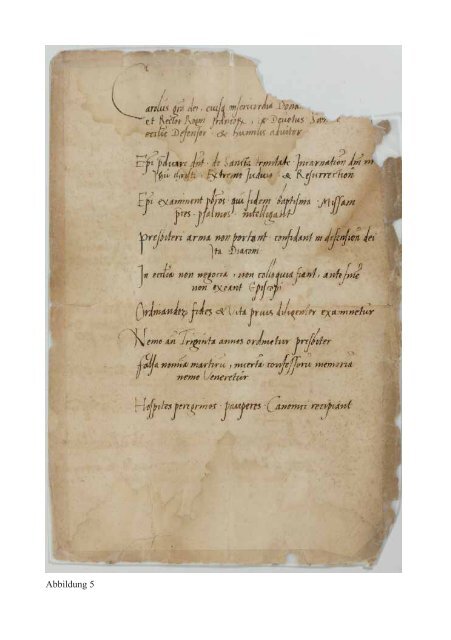 Carolus gra dei · eiusq misericordia Dona
et Rector Regni francoR, & Deuotus San
ecclie Defensor · & humilis adiutor
Epi pdicare dnt · de Sancta trinitate · Incarnation dni n
Jhu christi · Extremo Judicio · & Resurrection
Epi examinent pbros · qui fidem · baptisma · Missam
pres · psalmos · intelligant
Presbiteri arma non portent · confidant in defension dei
Ita Diaconi
In ecclia non negocia · non colloquia fiant, ante fine
non exeant Episcopi
Ordinandor fides & Vita prius diligenter examinetur
Nemo an Triginta annos ordinetur presbiter
falsa nomia martiru, incerta confessoru memoria
nemo Veneretur
Hospites peregrinos · pauperes · Canonici recipiant
Abbildung 5